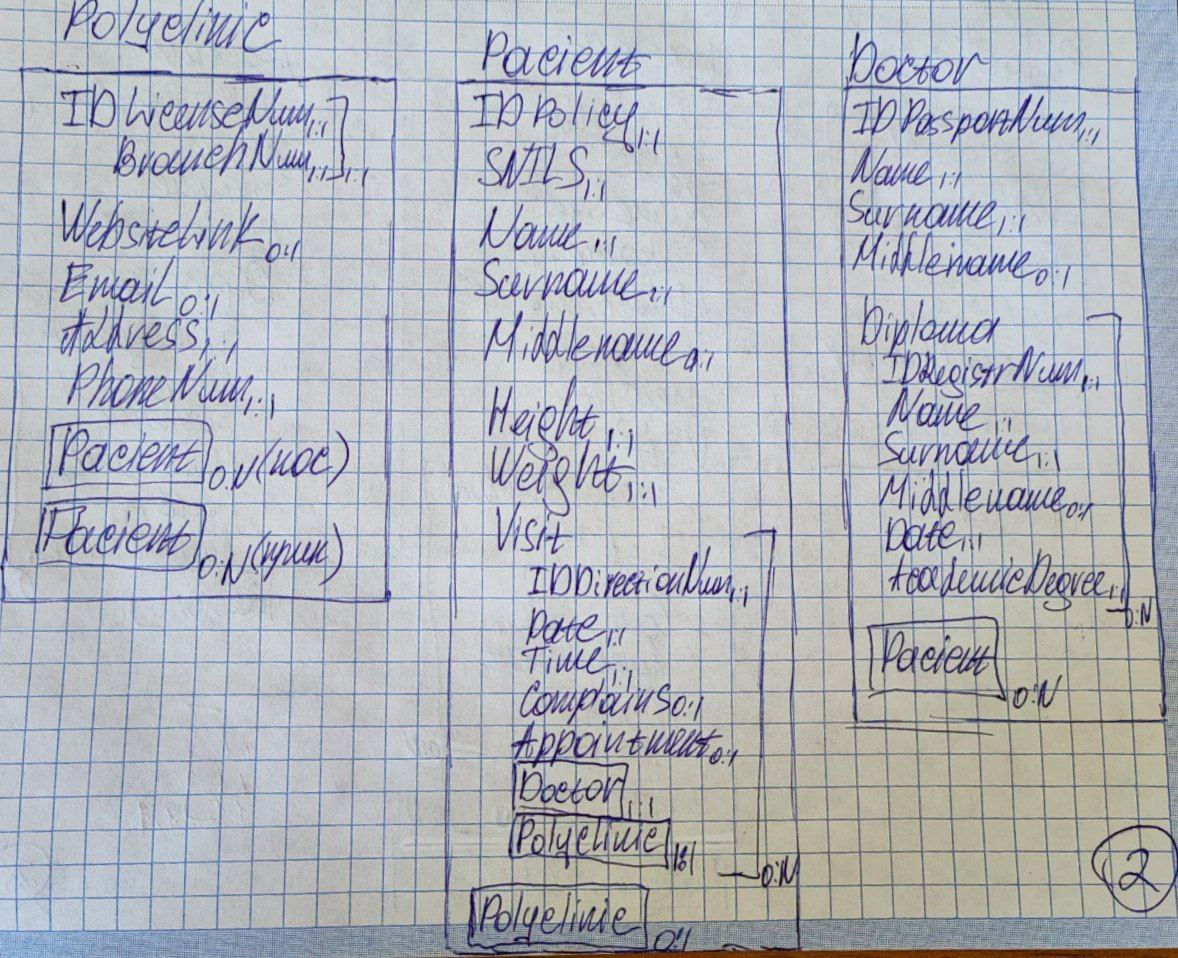 Polyclinic
IDLicenseNum1:1
BranchNum1:1 1:1
WebsiteLink0:1
Email0:1
Address1:1
PhoneNum1:1
Pacient 0:N(пос)
Pacient 0:N(прик)
Pacient
IDPolicy1:1
SNILS1:1
Name1:1
Surname1:1
Middlename0:1
Height1:1
Weight1:1
Visit
IDDirectionNum1:1
Date1:1
Time1:1
Complains0:1
Appointment0:1
Doctor1:1
Polyclinic1:1
0:N
Polyclinic 0:1
Doctor
IDPassportNum1:1
Name1:1
Surname1:1
Middlename0:1
Diploma
IDRegistrNum1:1
Name1:1
Surname1:1
Middlename0:1
Date1:1
AcademicDegree1:1
0:N
Pacient 0:N
2